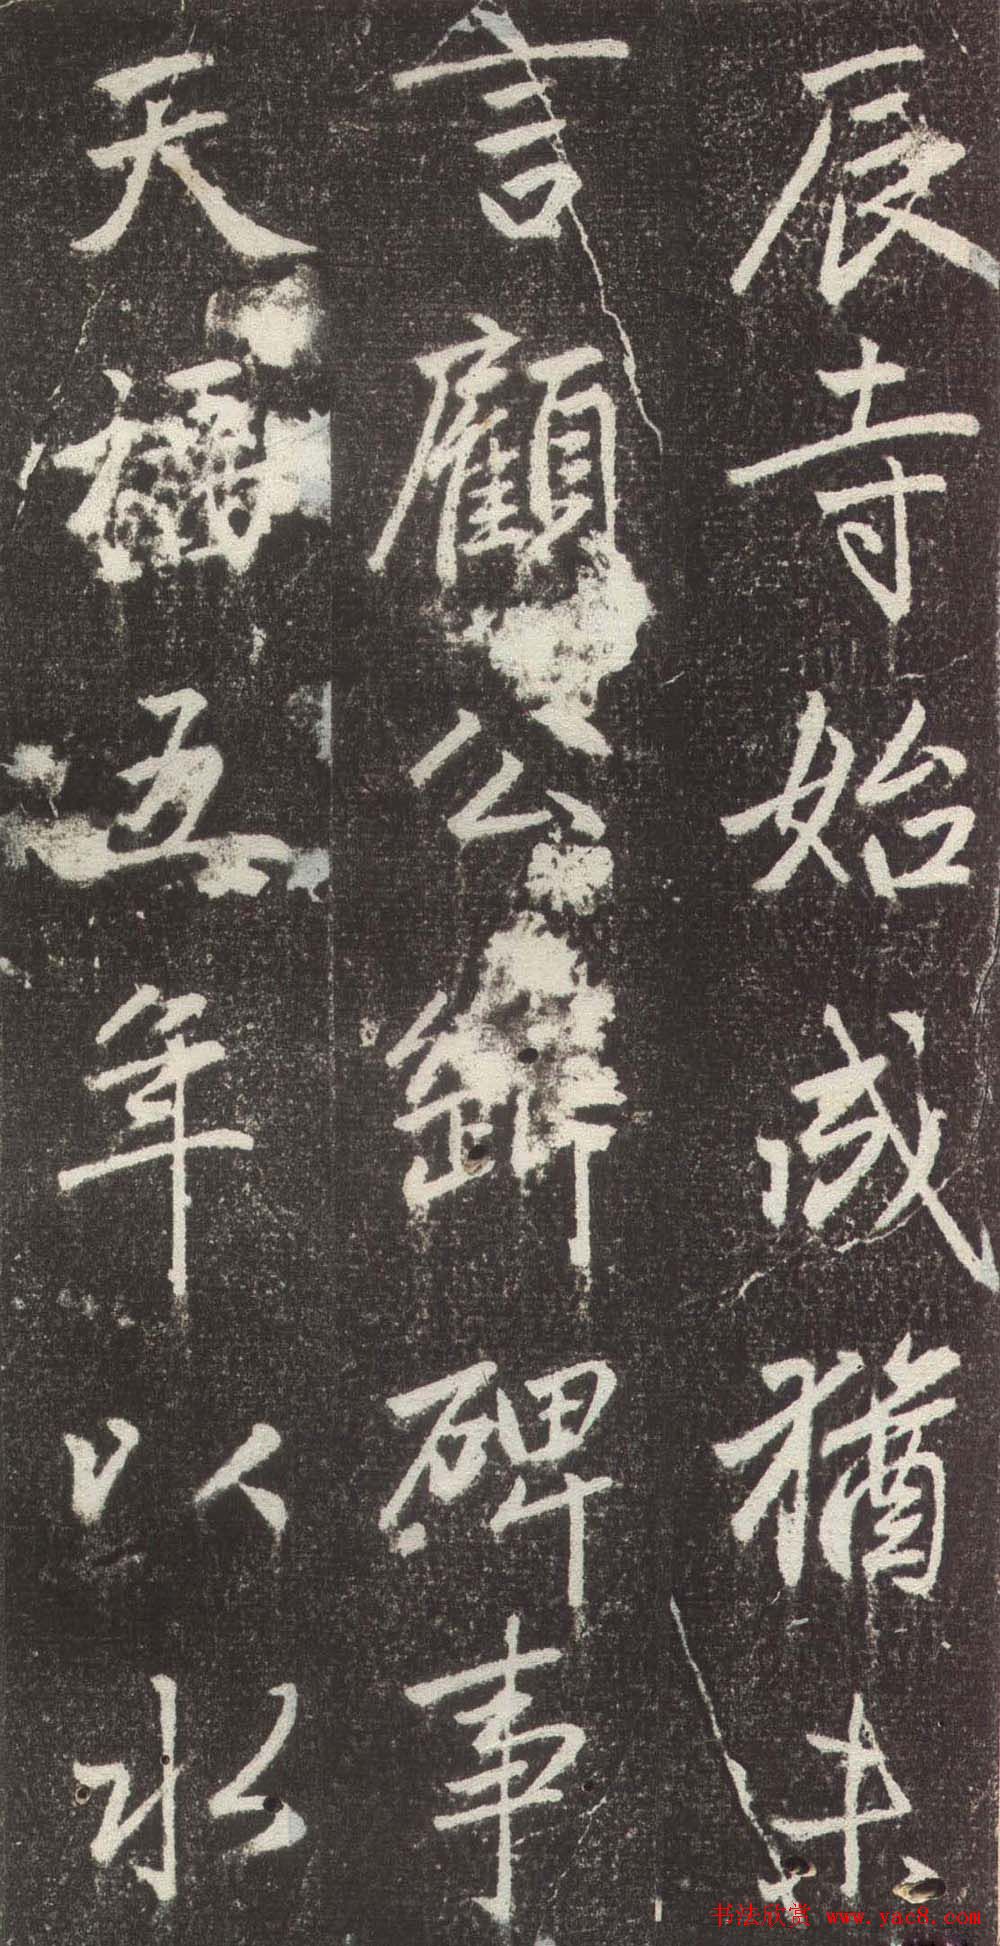 辰寺始成猶未
言顧公碑事
天福五年以水
书法欣赏 www.yac8.com